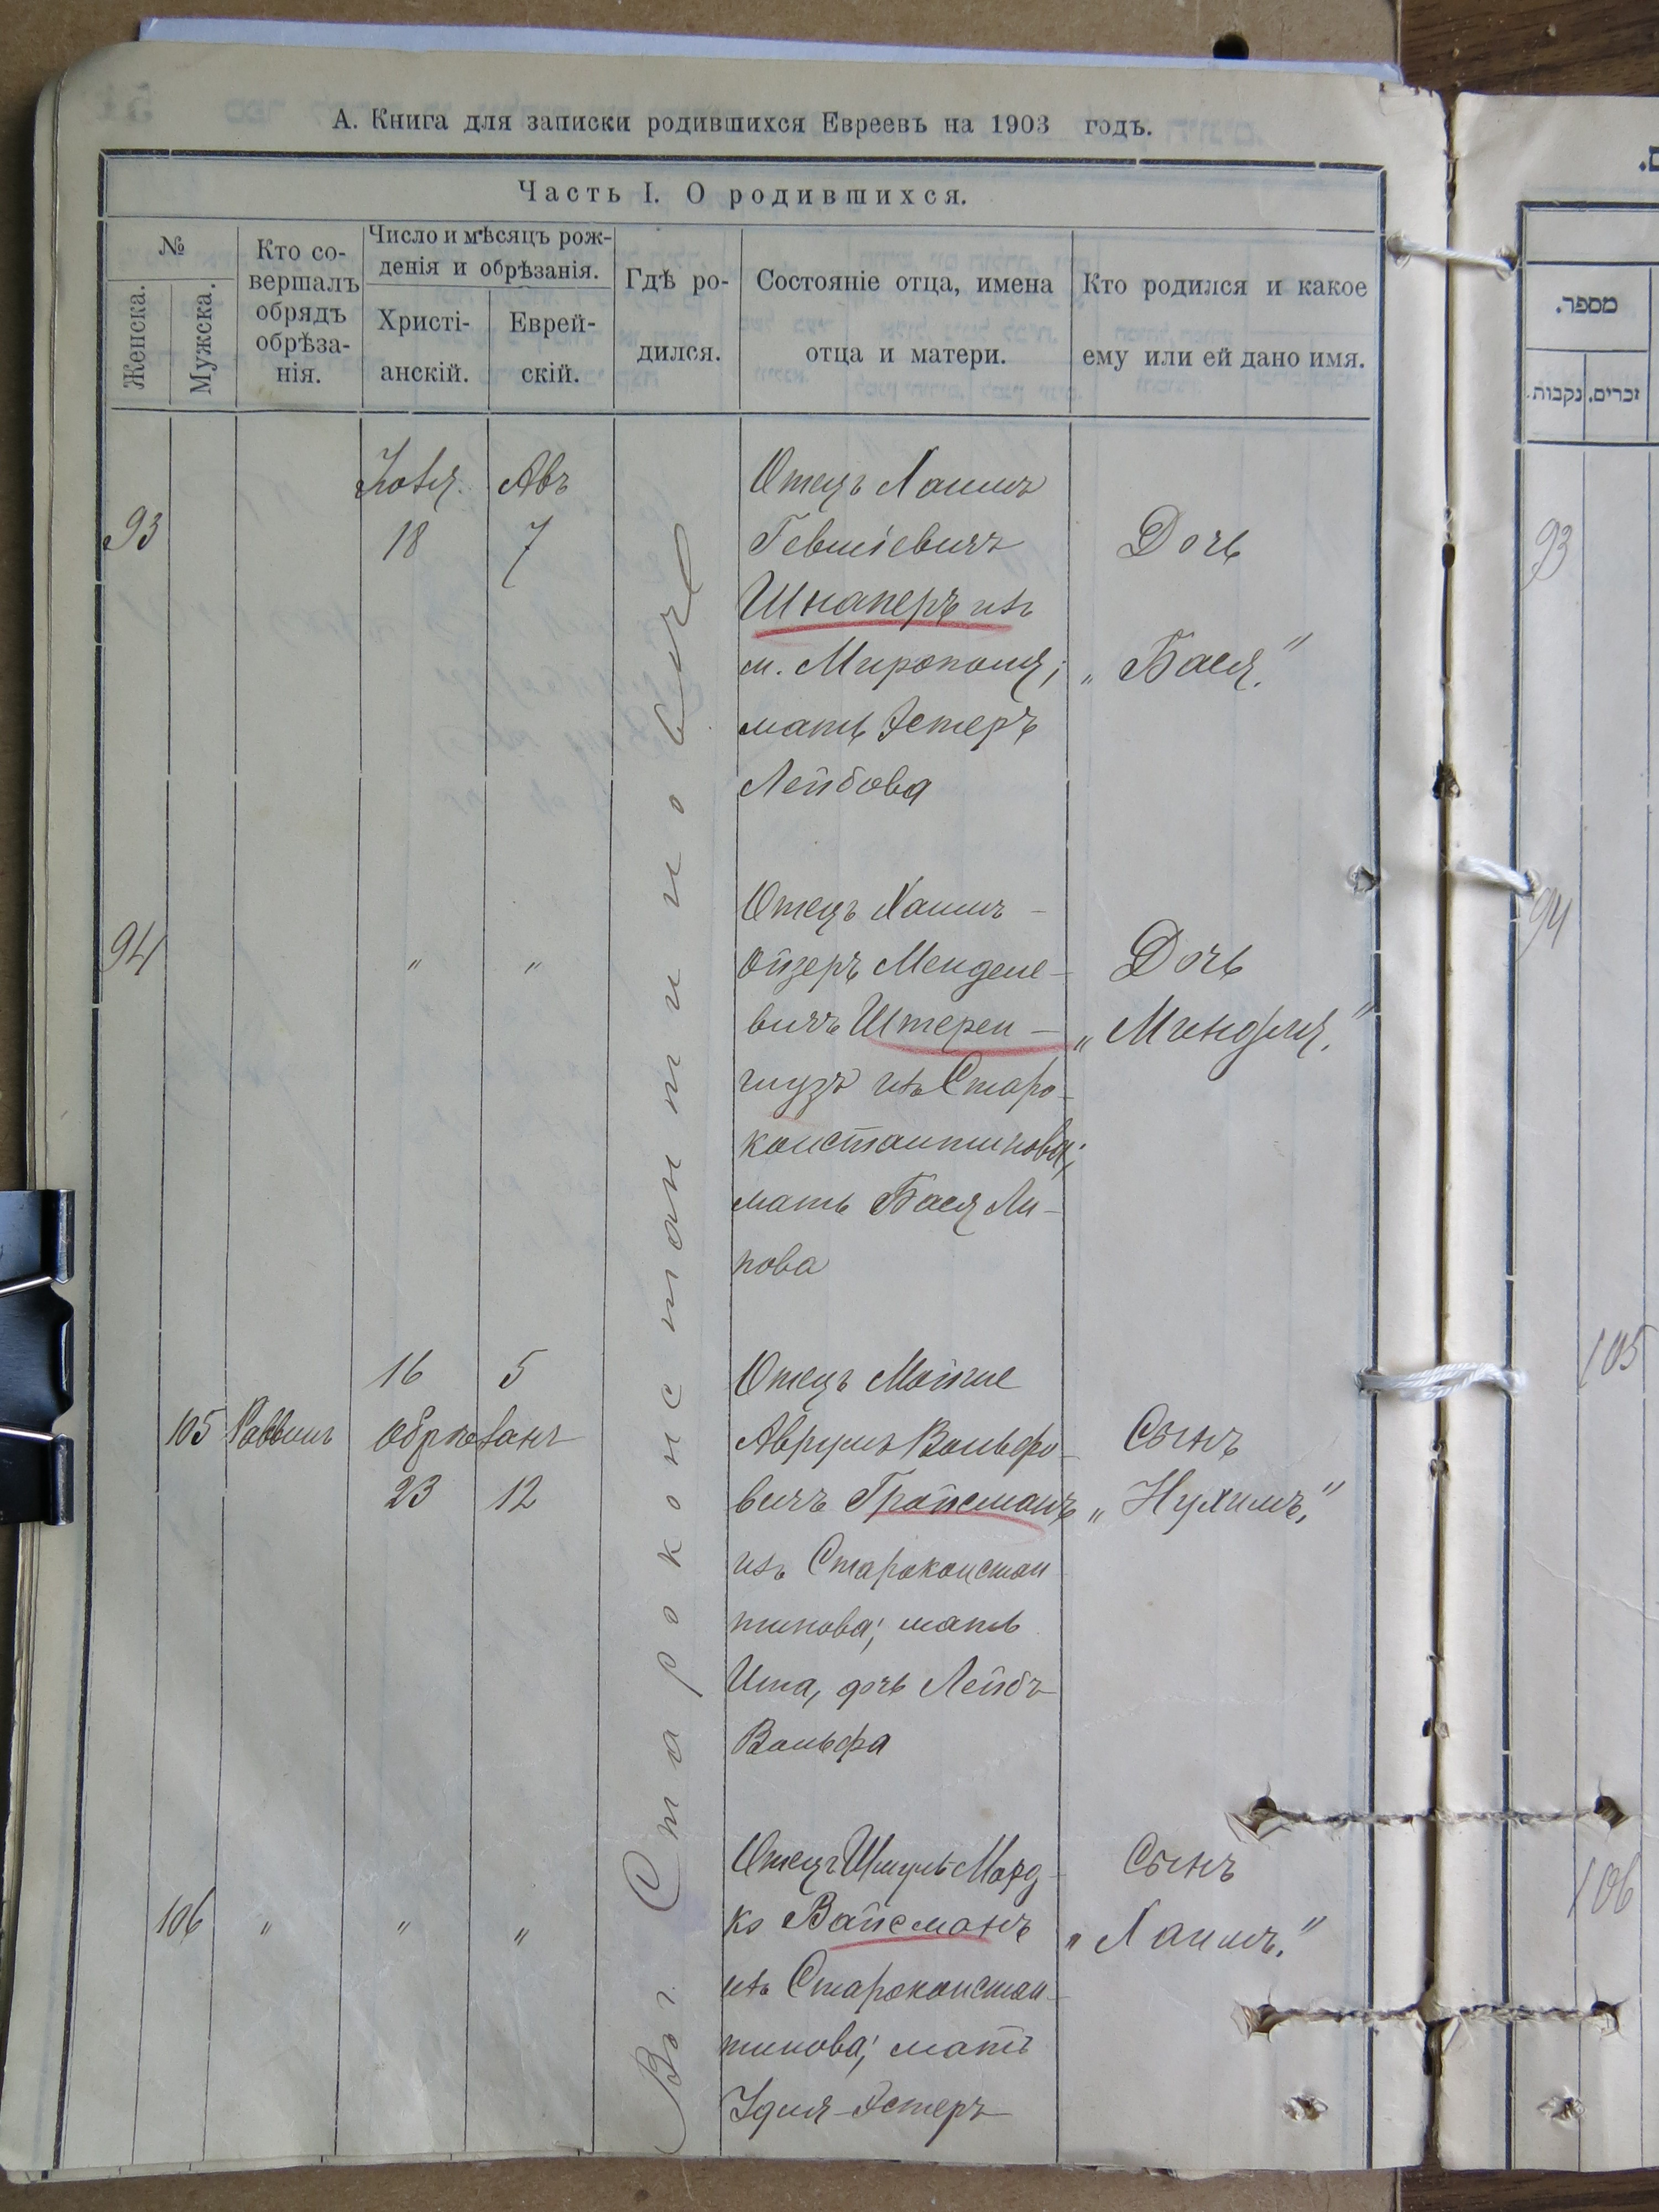 А. Книга для записки родившихся Евреевъ на 1903 годъ.
Часть I. О родившихся.
№
Женска.
Мужска.
Кто со-
вершалъ
обрядъ
обрѣза-
нія.
Число и мѣсяцъ рож-
денія и обрѣзанія.
Христі-
анскій.
Еврей-
скій.
Гдѣ ро-
дился.
Состояніе отца, имена
отца и матери.
Кто родился и какое
ему или ей дано имя.
Вог. Староконстантиновѣ
93
Авъ
18
7
Отецъ Хаимъ
Гевшіевичъ
Шнаперъ изъ
м. Мирополя;
мать Эстеръ
Лейбова
Дочь
„Бася.“
94
„
„
Отецъ Хаимъ-
Ойзеръ Менделе-
вичъ Штерен-
шузъ изъ Старо-
константинова;
мать Бася Ли-
пова
Дочь
„Миндля.“
105
Раввинъ
16
5
Обрѣзанъ
23
12
Отецъ Мойше
Аврумъ Вольфо-
вичъ Гройсманъ
изъ Староконстан
тинова; мать
Ита, дочь Лейбъ
Вольфа
Сынъ
„Нухимъ.“
106
„
„
„
Отецъ Шмуль-Морд-
ко Вайсманъ
изъ Староконстан-
тинова; мать
Удля-Эстеръ
Сынъ
„Хаимъ.“
מספר.
נקבות.
זכרים.
93
94
105
106